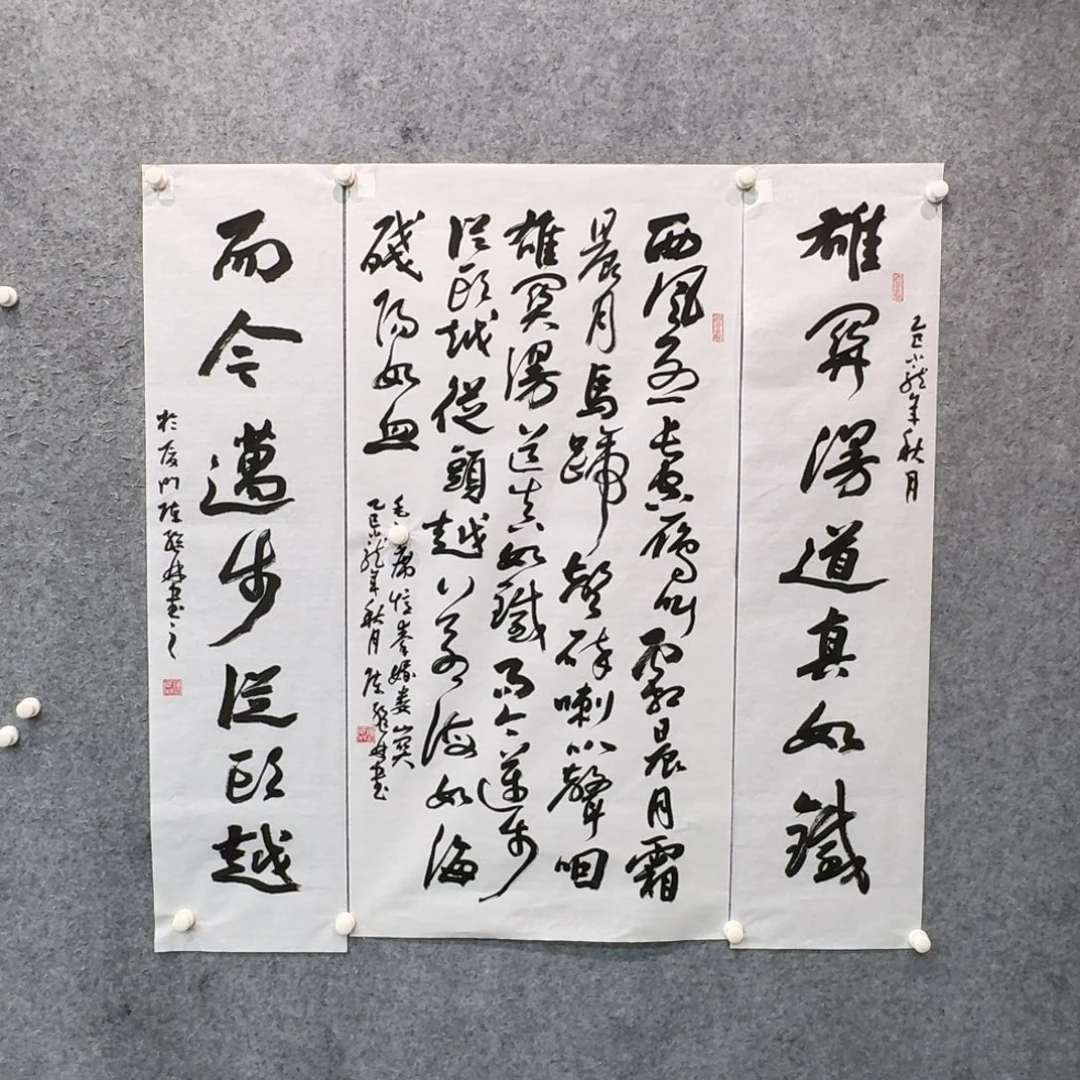 乙巳小龍年秋月
雄關漫道真如鐵
西風烈長空雁叫霜晨月霜
晨月馬蹄聲碎喇叭聲咽
雄關漫道真如鐵而今邁步
從頭越從頭越蒼海如海
殘陽如血
毛 席憶秦娥婁山關
乙巳小龍年秋月 陳 書
而今邁步從頭越
於廈門陳 書之